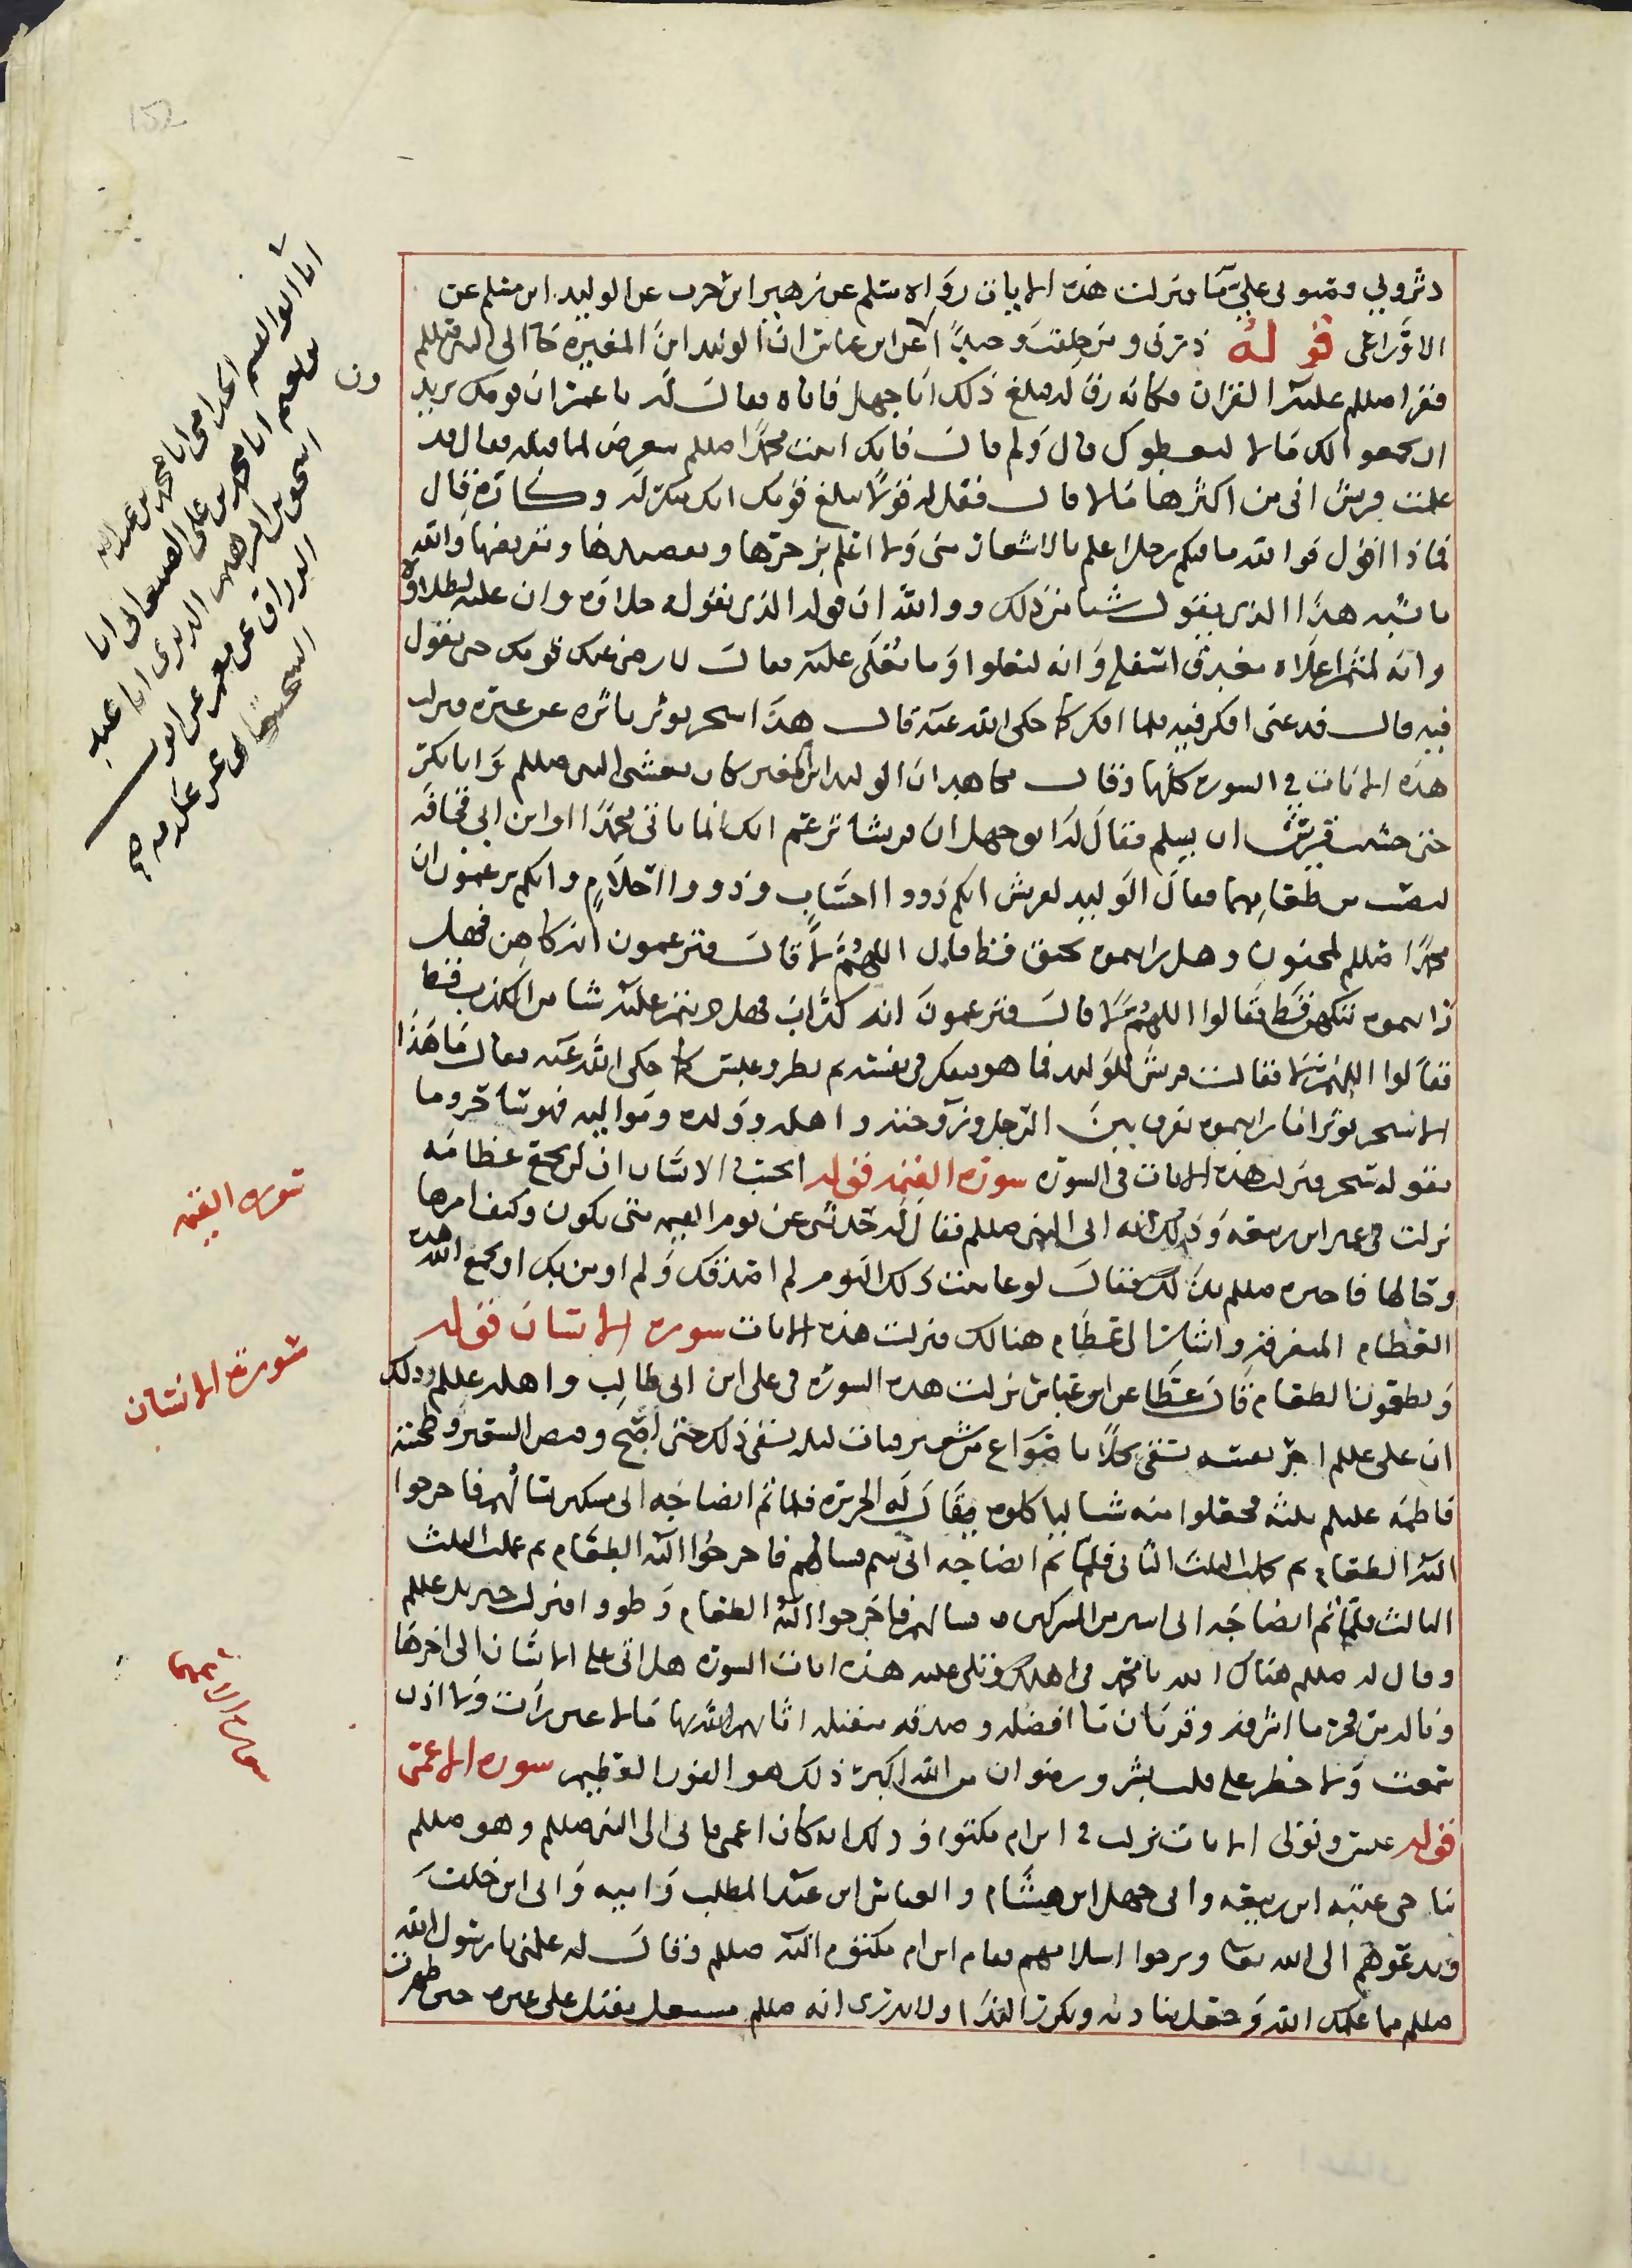 دثروني وصبوا علي ماء فنزلت هذه الايات رواه مسلم عن زهير ابن حرب عن الوليد ابن مسلم عن
الاوزاعي قوله ذرني ومن خلقت وحيدا عن ابن عباس ان الوليد ابن المغيره جا الى النبي صللم
فقرا صللم عليه القران فكانه رق له فبلغ ذلك ابا جهل فاتاه فقال له يا عم ان قومك يريدون
ان يجمعوا لك مالا ليعطوك قال ولم قال فانك اتيت محمدا صللم لتعرض لما قبله فقال قد
علمت قريش اني من اكثرها مالا قال فقل له قولا يبلغ قومك انك منكر له وكاره قال
فماذا اقول فوالله ما فيكم رجل اعلم بالاشعار مني ولا اعلم برجزها وبقصيدها
ما يشبه هذا الذي يقول شيا من ذلك ووالله ان لقوله الذي يقوله حلاوه وان عليه لطلاوة
وانه لمثمر اعلاه مغدق اسفله وانه ليعلوا وما يعلى عليه فقال لا يرضى عنك قومك حتى تقول
فيه قال فدعني افكر فيه فلما افكر كما حكى الله عنه قال هذا سحر يوثر ياثره عن غيره فنزلت
هذه الايات في السوره كلها وقال مجاهد ان الوليد ابن المغيره كان يغشى النبي صللم وابا بكر
حتى حسبت قريش ان يسلم فقال له ابو جهل ان قريشا تزعم انك انما تاتي محمدا وابن ابي قحافه
لتصيب من طعامهما فقال الوليد لقريش انكم ذووا احساب وذووا احلام وانكم تزعمون ان
محمدا صللم لمجنون وهل رايتموه يخنق قط قالوا اللهم لا قال فتزعمون انه كاهن فهل
رايتموه تكهن قط فقالوا اللهم لا قال فتزعمون انه كذاب فهل جربتم عليه شيا من الكذب قط
فقالوا اللهم لا فقالت قريش للوليد فما هو ففكر في نفسه ثم نظر وعبس كما حكى الله عنه فقال ما هذا
الا سحر يوثر اما رايتموه يفرق بين الرجل وزوجته واهله وولده ومواليه فهو ساحر وما
يقوله سحر فنزلت هذه الايات في السوره سورة القيمه قوله ايحسب الانسان ان لن نجمع عظامه
نزلت في عمر ابن ربيعه وذلك انه اتى النبي صللم فقال له حدثني عن يوم القيمه متى يكون وكيف امرها
وحالها فاخبره صللم بذلك فقال لو عاينت ذلك اليوم لم اصدقك ولم اومن بك او يجمع الله هذه
العظام المتفرقه فنزلت هذه الايات سوره الانسان قوله
ويطعمون الطعام قال عطا عن ابن عباس نزلت هذه السوره في علي ابن ابي طالب واهله عللم وذلك
ان علي عللم اجر نفسه يسقي نخلا باصواع من شعير فبات ليله يسقي ذلك حتى اصبح وقبض الشعير وطحنت
فاطمه عليلم ثلثه فجعلوا منه شيا لياكلوه يقال له الحريره فلما تم انضاجه اتى مسكين يسالهم فاخرجوا
اليه الطعام ثم عملت الثلث الثاني فلما تم انضاجه اتى يتيم فسالهم فاخرجوا اليه الطعام ثم عملت الثلث
الثالث فلما تم انضاجه اتى اسير من المشركين فسالهم فاخرجوا اليه الطعام وطووا فنزل جبريل عللم
وقال له صللم هناك الله يا محمد في اهلك وتلى عليه هذه ايات السوره هل اتى على الانسان الى اخرها
وياله من فخر ما اشرفه وقربان ما افضله وصدقه متقبله اثابهم الله بها مالا عين رات ولا اذن
سمعت ولا خطر على قلب بشر ورضوان من الله اكبر ذلك هو الفوز العظيم سوره الاعمى
قوله عبس وتولى الايات نزلت في ابن ام مكتوم وذلك انه كان اعمى فاتى الى النبي صللم وهو صللم
يناجي عتبه ابن ربيعه وابي جهل ابن هشام والعباس ابن عبد المطلب وابيه وابي ابن خلف
ويدعوهم الى الله تعالى ويرجوا اسلامهم فقام ابن ام مكتوم اليه صللم وقال له علمني يا رسول الله
صللم مما علمك الله وجعل يناديه ويكرر الندا ولا يدري انه صللم مشتغل مقبل على غيره حتى ظهرت
انا ابو القسم
محمد بن علي الصنعاني انا
اسحق بن ابراهيم الدبري انا عبد
الرزاق عن معمر عن ايوب
السختياني عن عكرمه صح
سوره القيمه
سورة الانسان